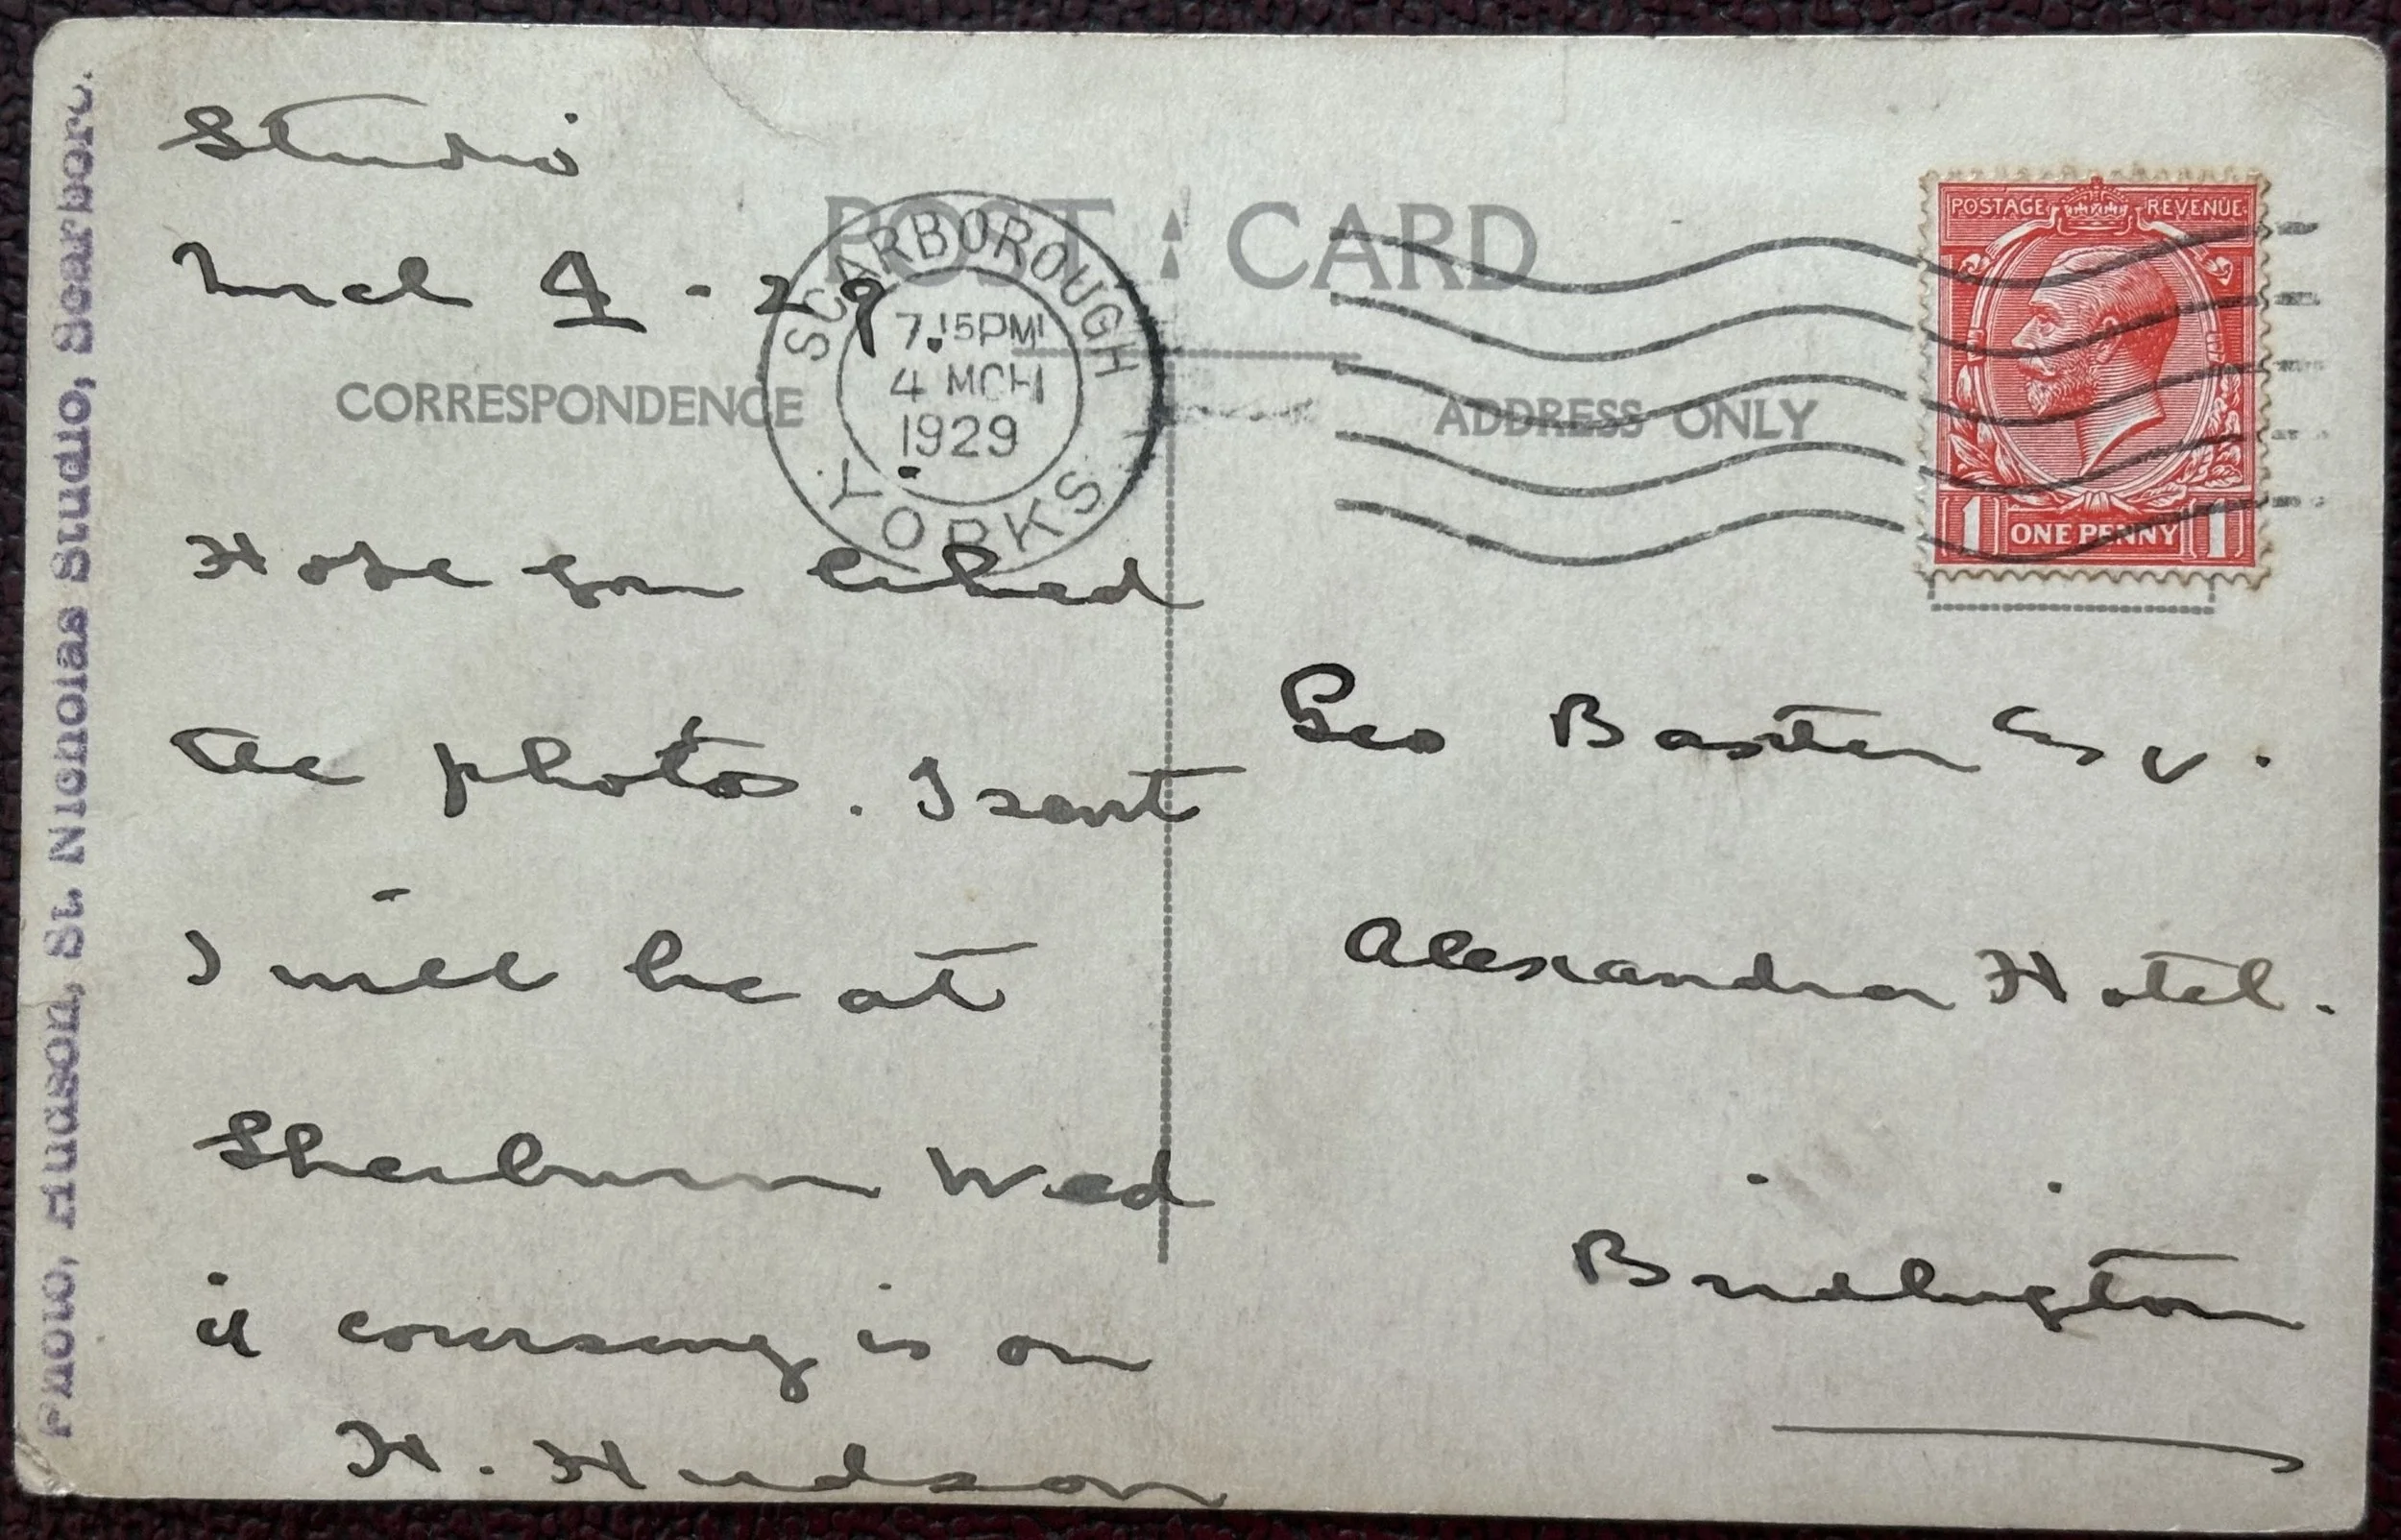 Photo, Hudson, St. Nicholas Studio, Scarboro.
Studio
Mch 4 - 29
POST CARD
SCARBOROUGH
7.15PM
4 MCH
1929
YORKS
CORRESPONDENCE
ADDRESS ONLY
POSTAGE REVENUE
1 ONE PENNY 1
Hope you liked
the photos. I sent
I will be at
Sherburn Wed
if coursing is on
H. Hudson
Geo Baxter Esq.
Alexandra Hotel.
Bridlington